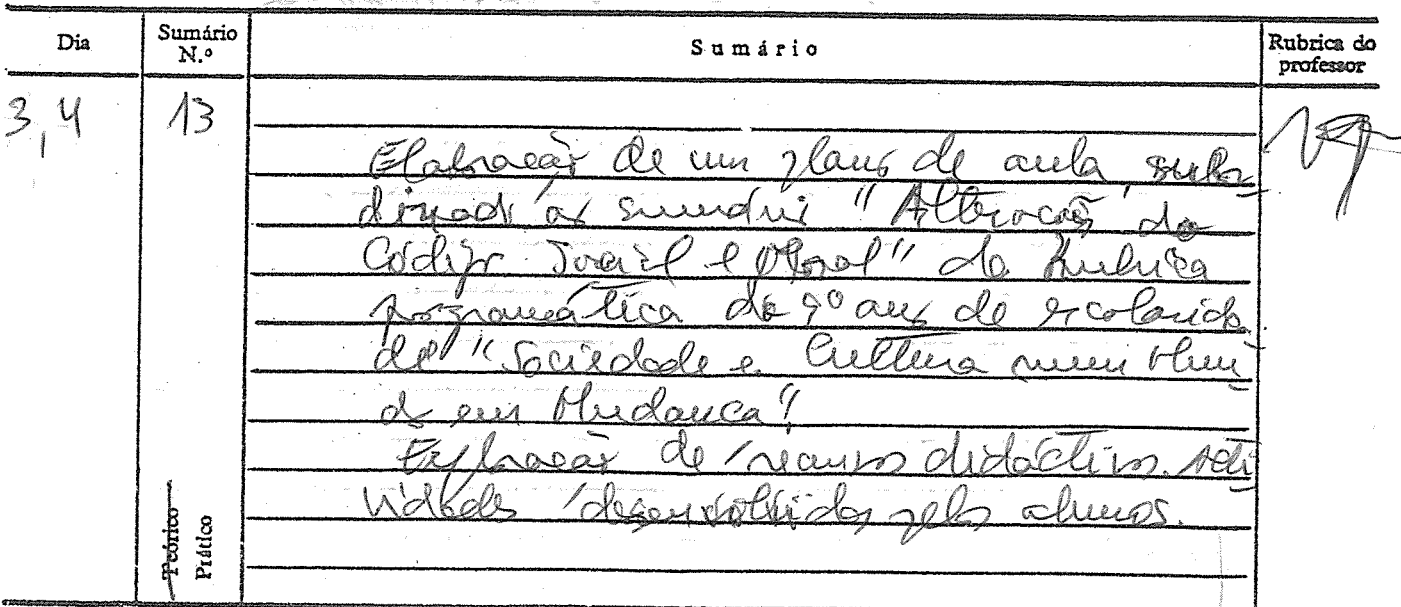 Dia Sumário N.º Sumário Rubrica do professor
3,4 13
Elaboração de um plano de aula, subor
dinado ao sumário "Alteração do
Código Social e Moral" da rubrica
programática do 9º ano de escolarida
de "Sociedade e Cultura num Mun
do em Mudança".
Exploração de recursos didácticos. Acti
vidades desenvolvidas pelos alunos.
Teórico
Prático